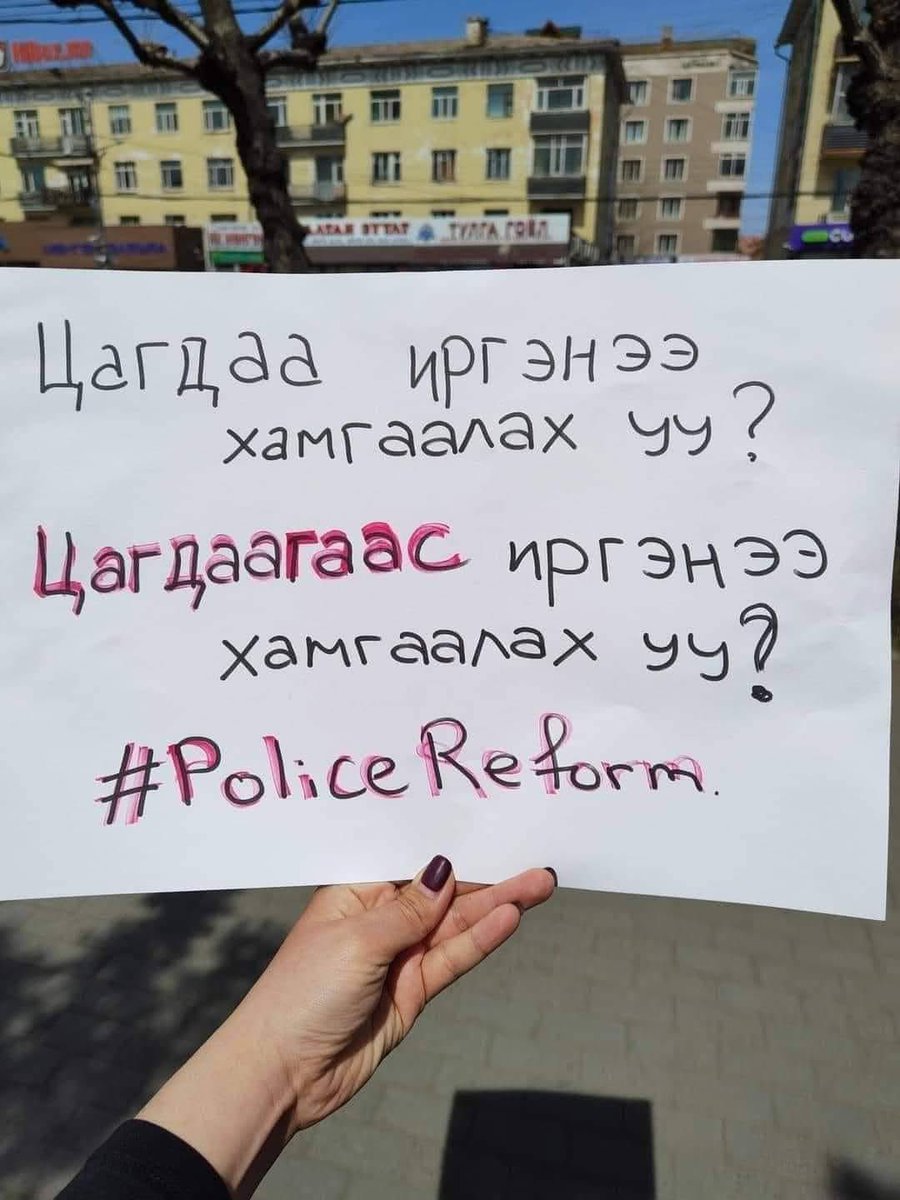 ТУЛГА ГОЙЛ
Цагдаа иргэнээ
хамгаалах уу?
Цагдаагаас иргэнээ
хамгаалах уу?
#PoliceReform.